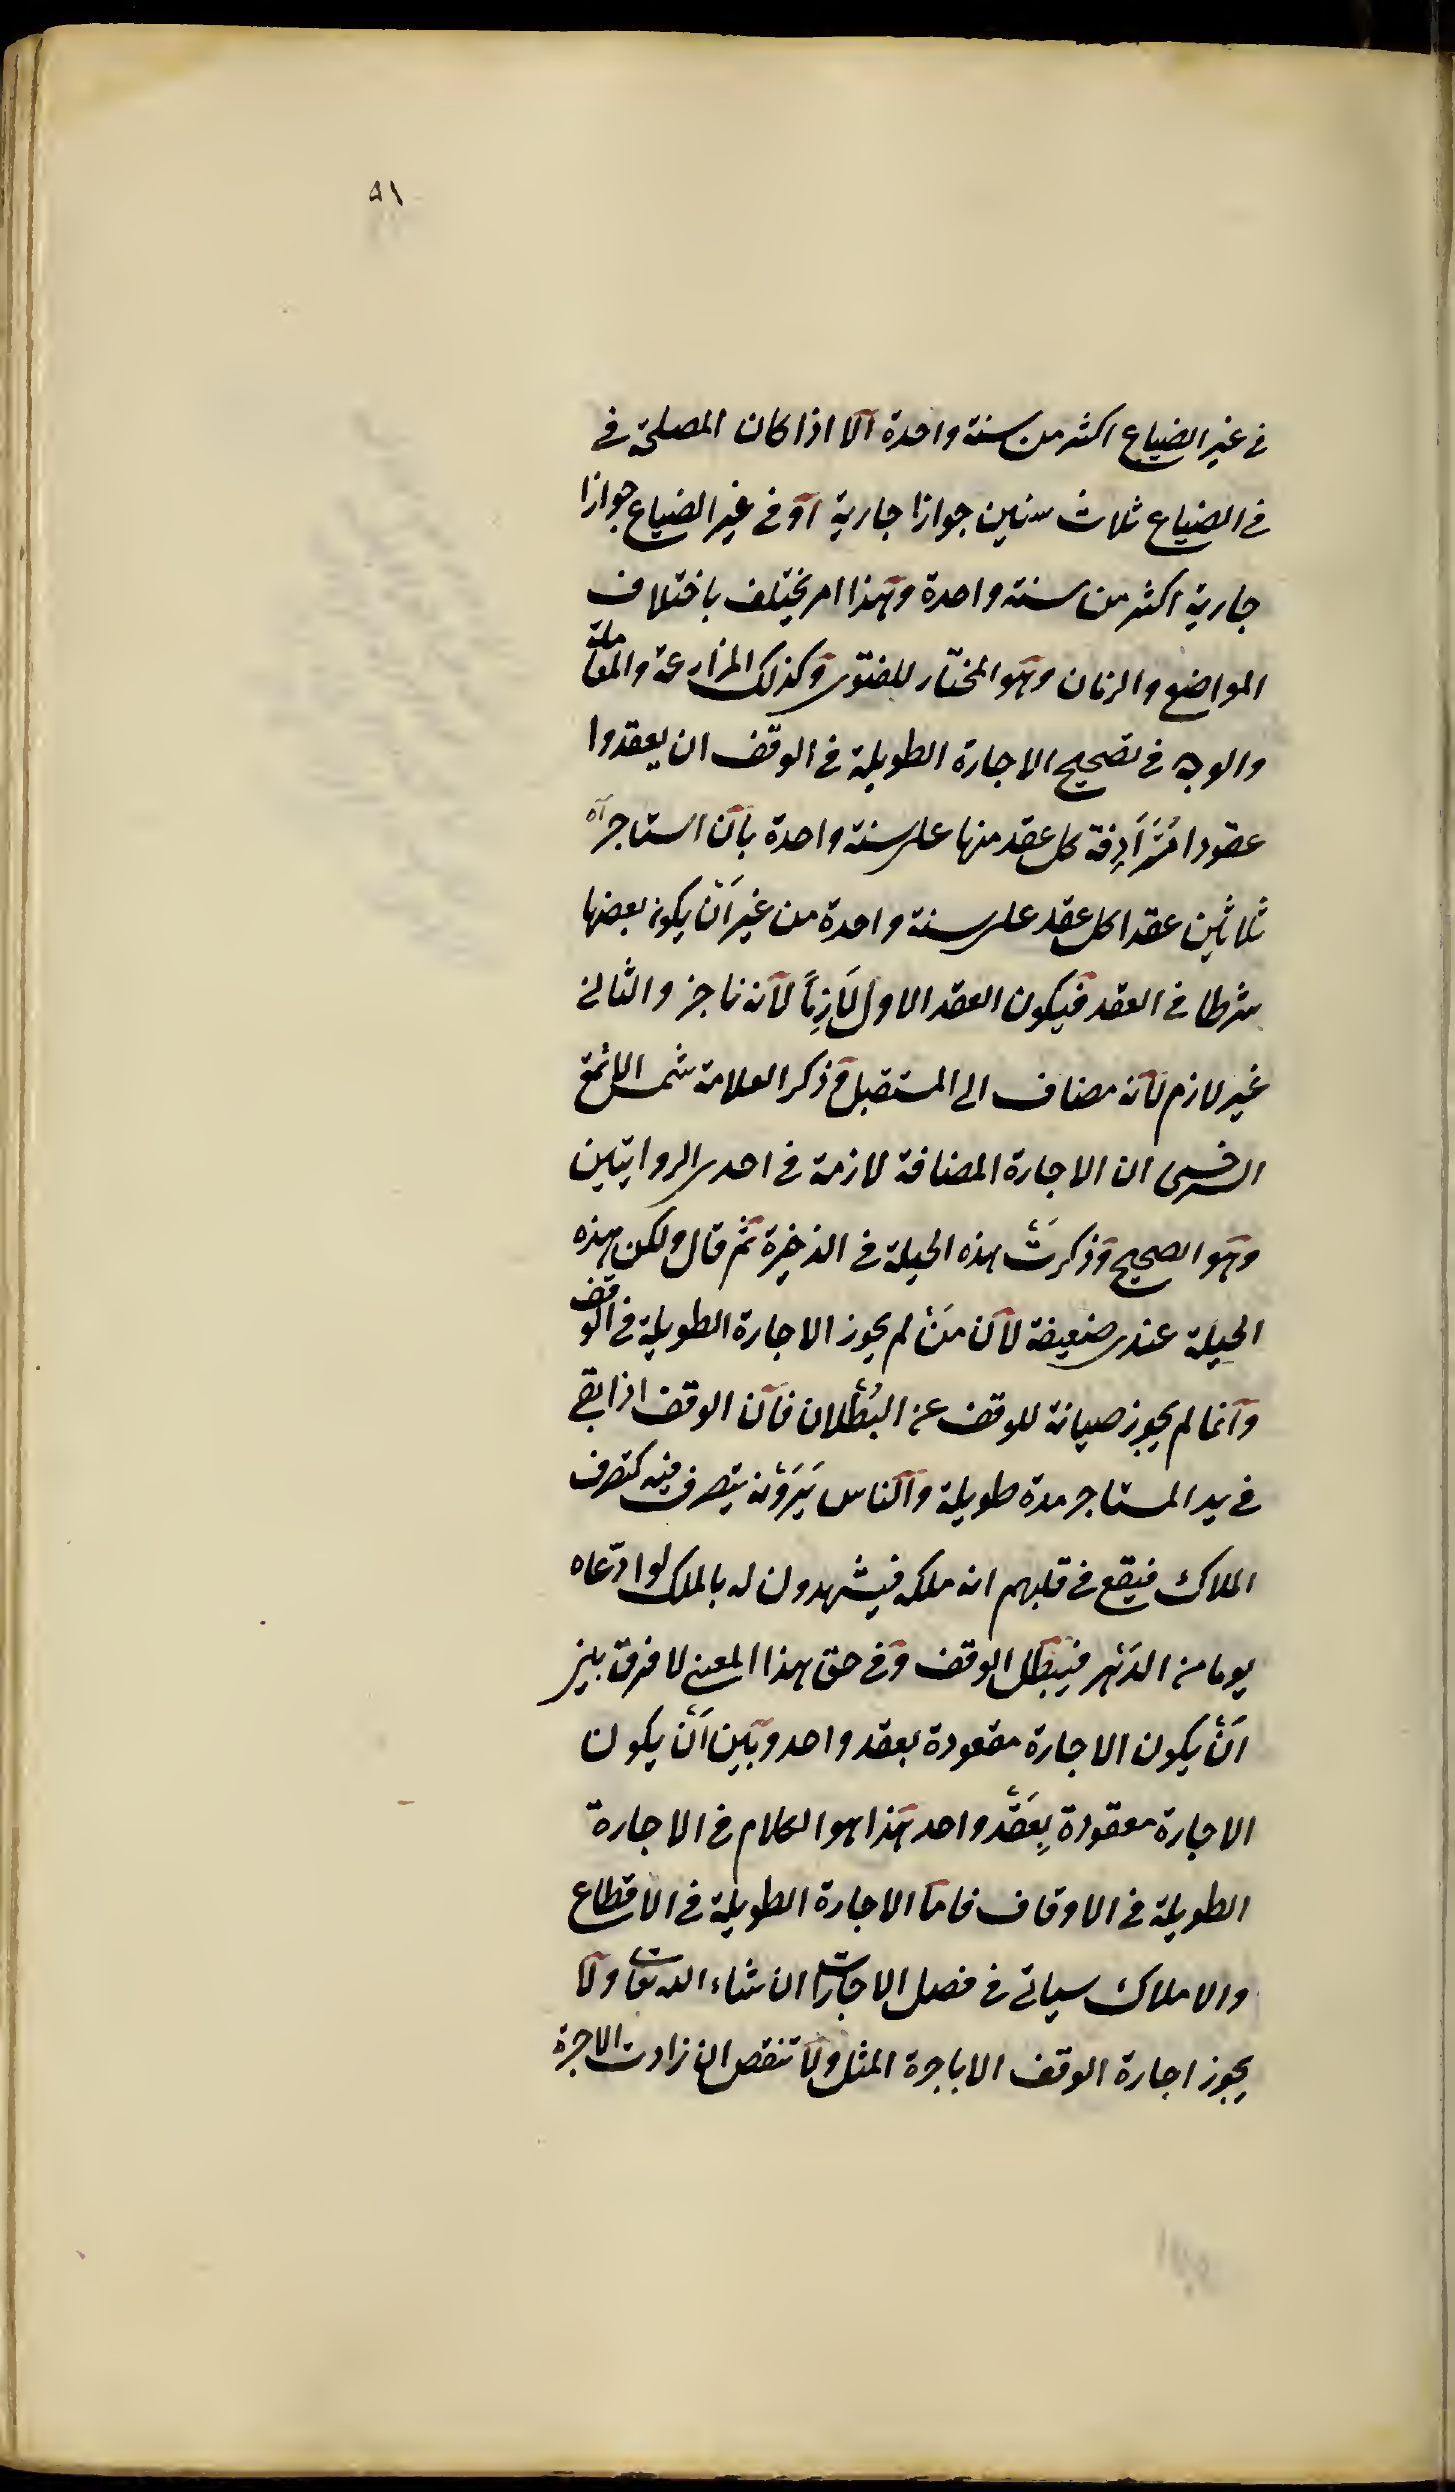 ٥١
في غير الضياع اكثر من سنة واحدة الا اذا كان المصلحة في
في الضياع ثلاث سنين جوازا جارية او في غير الضياع جوازا
جارية اكثر من سنة واحدة وهذا امر يختلف باختلاف
المواضع والزمان وهو المختار للفتوى وكذلك المزارعة والمعاملة
والوجه في تصحيح الاجارة الطويلة في الوقف ان يعقدوا
عقودا مُتَرَادِفة كل عقد منها على سنة واحدة بان استاجراه
ثلاثين عقدا كل عقد على سنة واحدة من غير اَنْ يكون بعضها
شرطا في العقد فيكون العقد الاول لَازِماً لانه ناجز والثاني
غير لازم لانه مضاف الى المستقبل وذكر العلامة شمس الائمة
السرخسى ان الاجارة المضافة لازمة في احدى الروايتين
وهو الصحيح وذكرتْ هذه الحيلة في الذخيرة ثم قال ولكن هذه
الحيلة عندى ضعيفة لان مَنْ لم يجوز الاجارة الطويلة في الوقف
وانما لم يجوز صيانة للوقف عن البُطْلان فان الوقف اذا بقى
في يد المستاجر مدة طويلة والناس يَرَوْنه يتصرف فيه كتصرف
الملاك فيقع في قلبهم انه ملكه فيشهدون له بالملك لو ادّعاه
يوما من الدَهْر فيبطل الوقف وفي حق هذا المعنى لا فرق بين
اَنْ يكون الاجارة مقعودة بعقد واحد وبين اَنْ يكون
الاجارة معقودة بِعَقْد واحد هذا هو الكلام في الاجارة
الطويلة في الاوقاف فاما الاجارة الطويلة في الاقطاع
والاملاك سياتى في فصل الاجارات ان شاء الله تعا ولا
يجوز اجارة الوقف الا باجرة المثل ولا تنقص ان زادت الاجرة